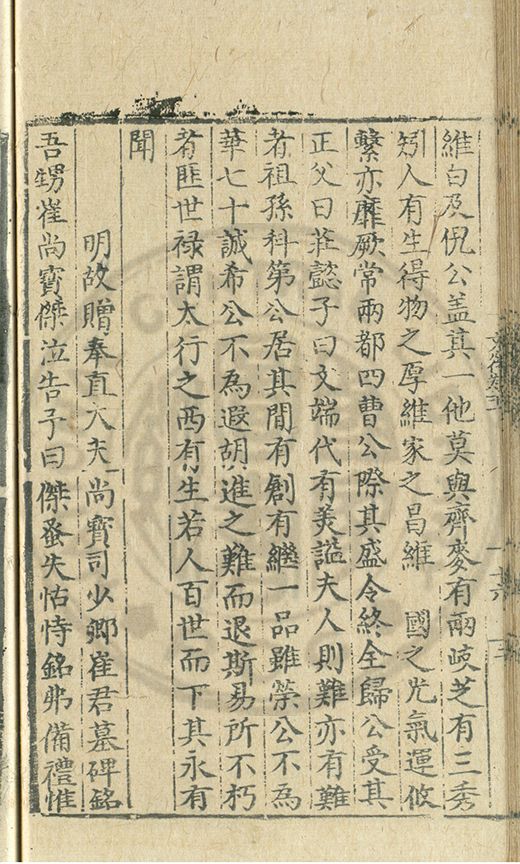 維白及倪公盖其一他莫與齊麥有兩歧芝有三秀
矧人有生得物之厚維家之昌維　國之光氣運攸
繫亦靡厥常兩都四曹公際其盛令終全歸公受其
正父曰莊懿子曰文端代有美謚夫人則難亦有難
者祖孫科第公居其間有創有繼一品雖榮公不為
華七十誠希公不為遐胡進之難而退斯易所不朽
者匪世禄謂太行之西有生若人百世而下其永有
聞
明故贈奉直大夫尚寶司少卿崔君墓碑銘
吾甥崔尚寶傑泣告子曰傑蚤失怙恃銘弗備禮惟